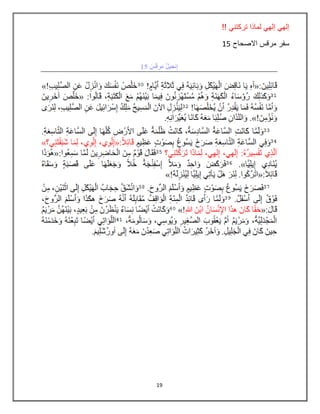 إلهي إلهي لماذا تركتني !!
سفر مرقس الاصحاح 15
إنجيل مرقس 15
قَائِلِينَ:«آهِ يَا نَاقِضَ الْهَيْكَلِ وَبَانِيَهُ فِي ثَلاَثَةِ أَيَّامٍ! 30خَلِّصْ نَفْسَكَ وَانْزِلْ عَنِ الصَّلِيبِ!»
31وَكَذلِكَ رُؤَسَاءُ الْكَهَنَةِ وَهُمْ مُسْتَهْزِئُونَ فِيمَا بَيْنَهُمْ مَعَ الْكَتَبَةِ، قَالُوا: «خَلَّصَ آخَرِينَ
وَأَمَّا نَفْسُهُ فَمَا يَقْدِرُ أَنْ يُخَلِّصَهَا! 32لِيَنْزِلِ الآنَ الْمَسِيحُ مَلِكُ إِسْرَائِيلَ عَنِ الصَّلِيبِ، لِنَرَى
وَنُؤْمِنَ!». وَاللَّذَانِ صُلِبَا مَعَهُ كَانَا يُعَيِّرَانِهِ.
33وَلَمَّا كَانَتِ السَّاعَةُ السَّادِسَةُ، كَانَتْ ظُلْمَةٌ عَلَى الأَرْضِ كُلِّهَا إِلَى السَّاعَةِ التَّاسِعَةِ.
34وَفِي السَّاعَةِ التَّاسِعَةِ صَرَخَ يَسُوعُ بِصَوْتٍ عَظِيمٍ قَائِلاً:«إِلُوِي، إِلُوِي، لِمَا شَبَقْتَنِي؟»
اَلَّذِي تَفْسِيرُهُ: إِلهِي، إِلهِي، لِمَاذَا تَرَكْتَنِي؟ 35فَقَالَ قَوْمٌ مِنَ الْحَاضِرِينَ لَمَّا سَمِعُوا:«هُوَذَا
يُنَادِي إِيلِيَّا». 36فَرَكَضَ وَاحِدٌ وَمَلأَ إِسْفِنْجَةً خَلاًّ وَجَعَلَهَا عَلَى قَصَبَةٍ وَسَقَاهُ
قَائِلاً:«اتْرُكُوا. لِنَرَ هَلْ يَأْتِي إِيلِيَّا لِيُنْزِلَهُ!»
37فَصَرَخَ يَسُوعُ بِصَوْتٍ عَظِيمٍ وَأَسْلَمَ الرُّوحَ. 38وَانْشَقَّ حِجَابُ الْهَيْكَلِ إِلَى اثْنَيْنِ، مِنْ
فَوْقُ إِلَى أَسْفَلُ. 39وَلَمَّا رَأَى قَائِدُ الْمِئَةِ الْوَاقِفُ مُقَابِلَهُ أَنَّهُ صَرَخَ هكَذَا وَأَسْلَمَ الرُّوحَ،
قَالَ:«حَقًّا كَانَ هذَا الإِنْسَانُ ابْنَ اللهِ!» 40وَكَانَتْ أَيْضًا نِسَاءٌ يَنْظُرْنَ مِنْ بَعِيدٍ، بَيْنَهُنَّ مَرْيَمُ
الْمَجْدَلِيَّةُ، وَمَرْيَمُ أُمُّ يَعْقُوبَ الصَّغِيرِ وَيُوسِي، وَسَالُومَةُ، 41اللَّوَاتِي أَيْضًا تَبِعْنَهُ وَخَدَمْنَهُ
حِينَ كَانَ فِي الْجَلِيلِ. وَأُخَرُ كَثِيرَاتٌ اللَّوَاتِي صَعِدْنَ مَعَهُ إِلَى أُورُشَلِيمَ.
19